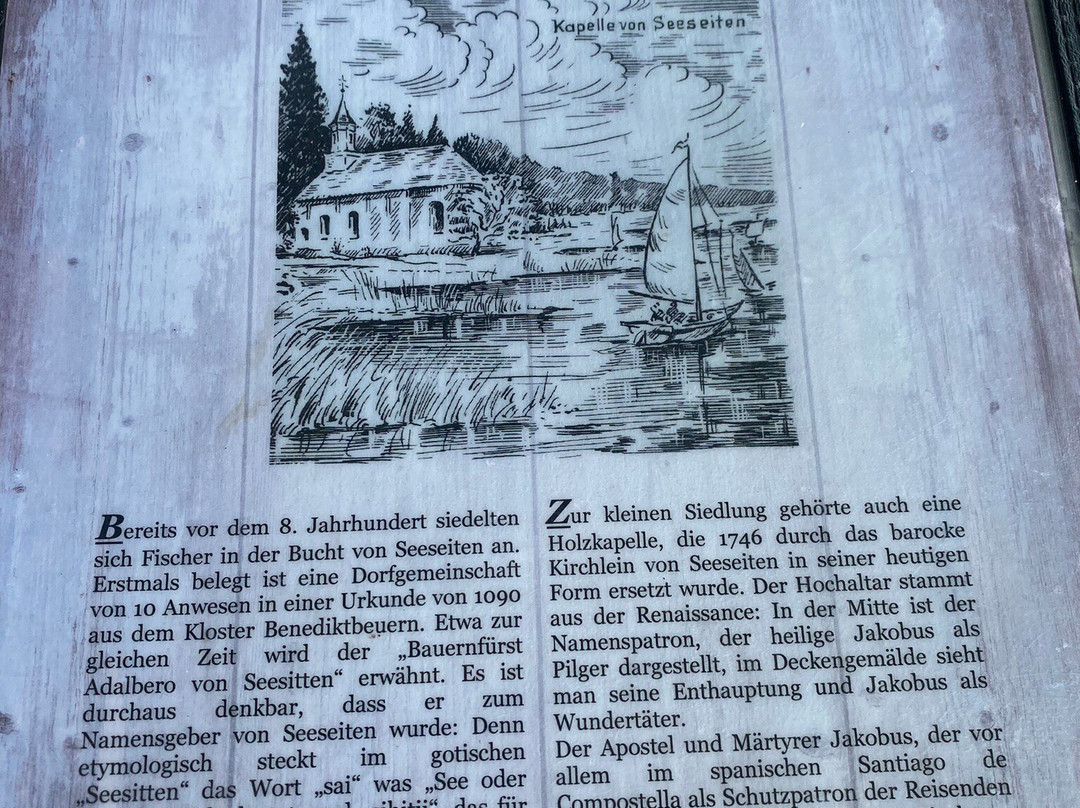 Kapelle von Seeseiten
Bereits vor dem 8. Jahrhundert siedelten
sich Fischer in der Bucht von Seeseiten an.
Erstmals belegt ist eine Dorfgemeinschaft
von 10 Anwesen in einer Urkunde von 1090
aus dem Kloster Benediktbeuern. Etwa zur
gleichen Zeit wird der „Bauernfürst
Adalbero von Seesitten“ erwähnt. Es ist
durchaus denkbar, dass er zum
Namensgeber von Seeseiten wurde: Denn
etymologisch steckt im gotischen
„Seesitten“ das Wort „sai“ was „See oder
das für
Zur kleinen Siedlung gehörte auch eine
Holzkapelle, die 1746 durch das barocke
Kirchlein von Seeseiten in seiner heutigen
Form ersetzt wurde. Der Hochaltar stammt
aus der Renaissance: In der Mitte ist der
Namenspatron, der heilige Jakobus als
Pilger dargestellt, im Deckengemälde sieht
man seine Enthauptung und Jakobus als
Wundertäter.
Der Apostel und Märtyrer Jakobus, der vor
allem im spanischen Santiago de
Compostella als Schutzpatron der Reisenden